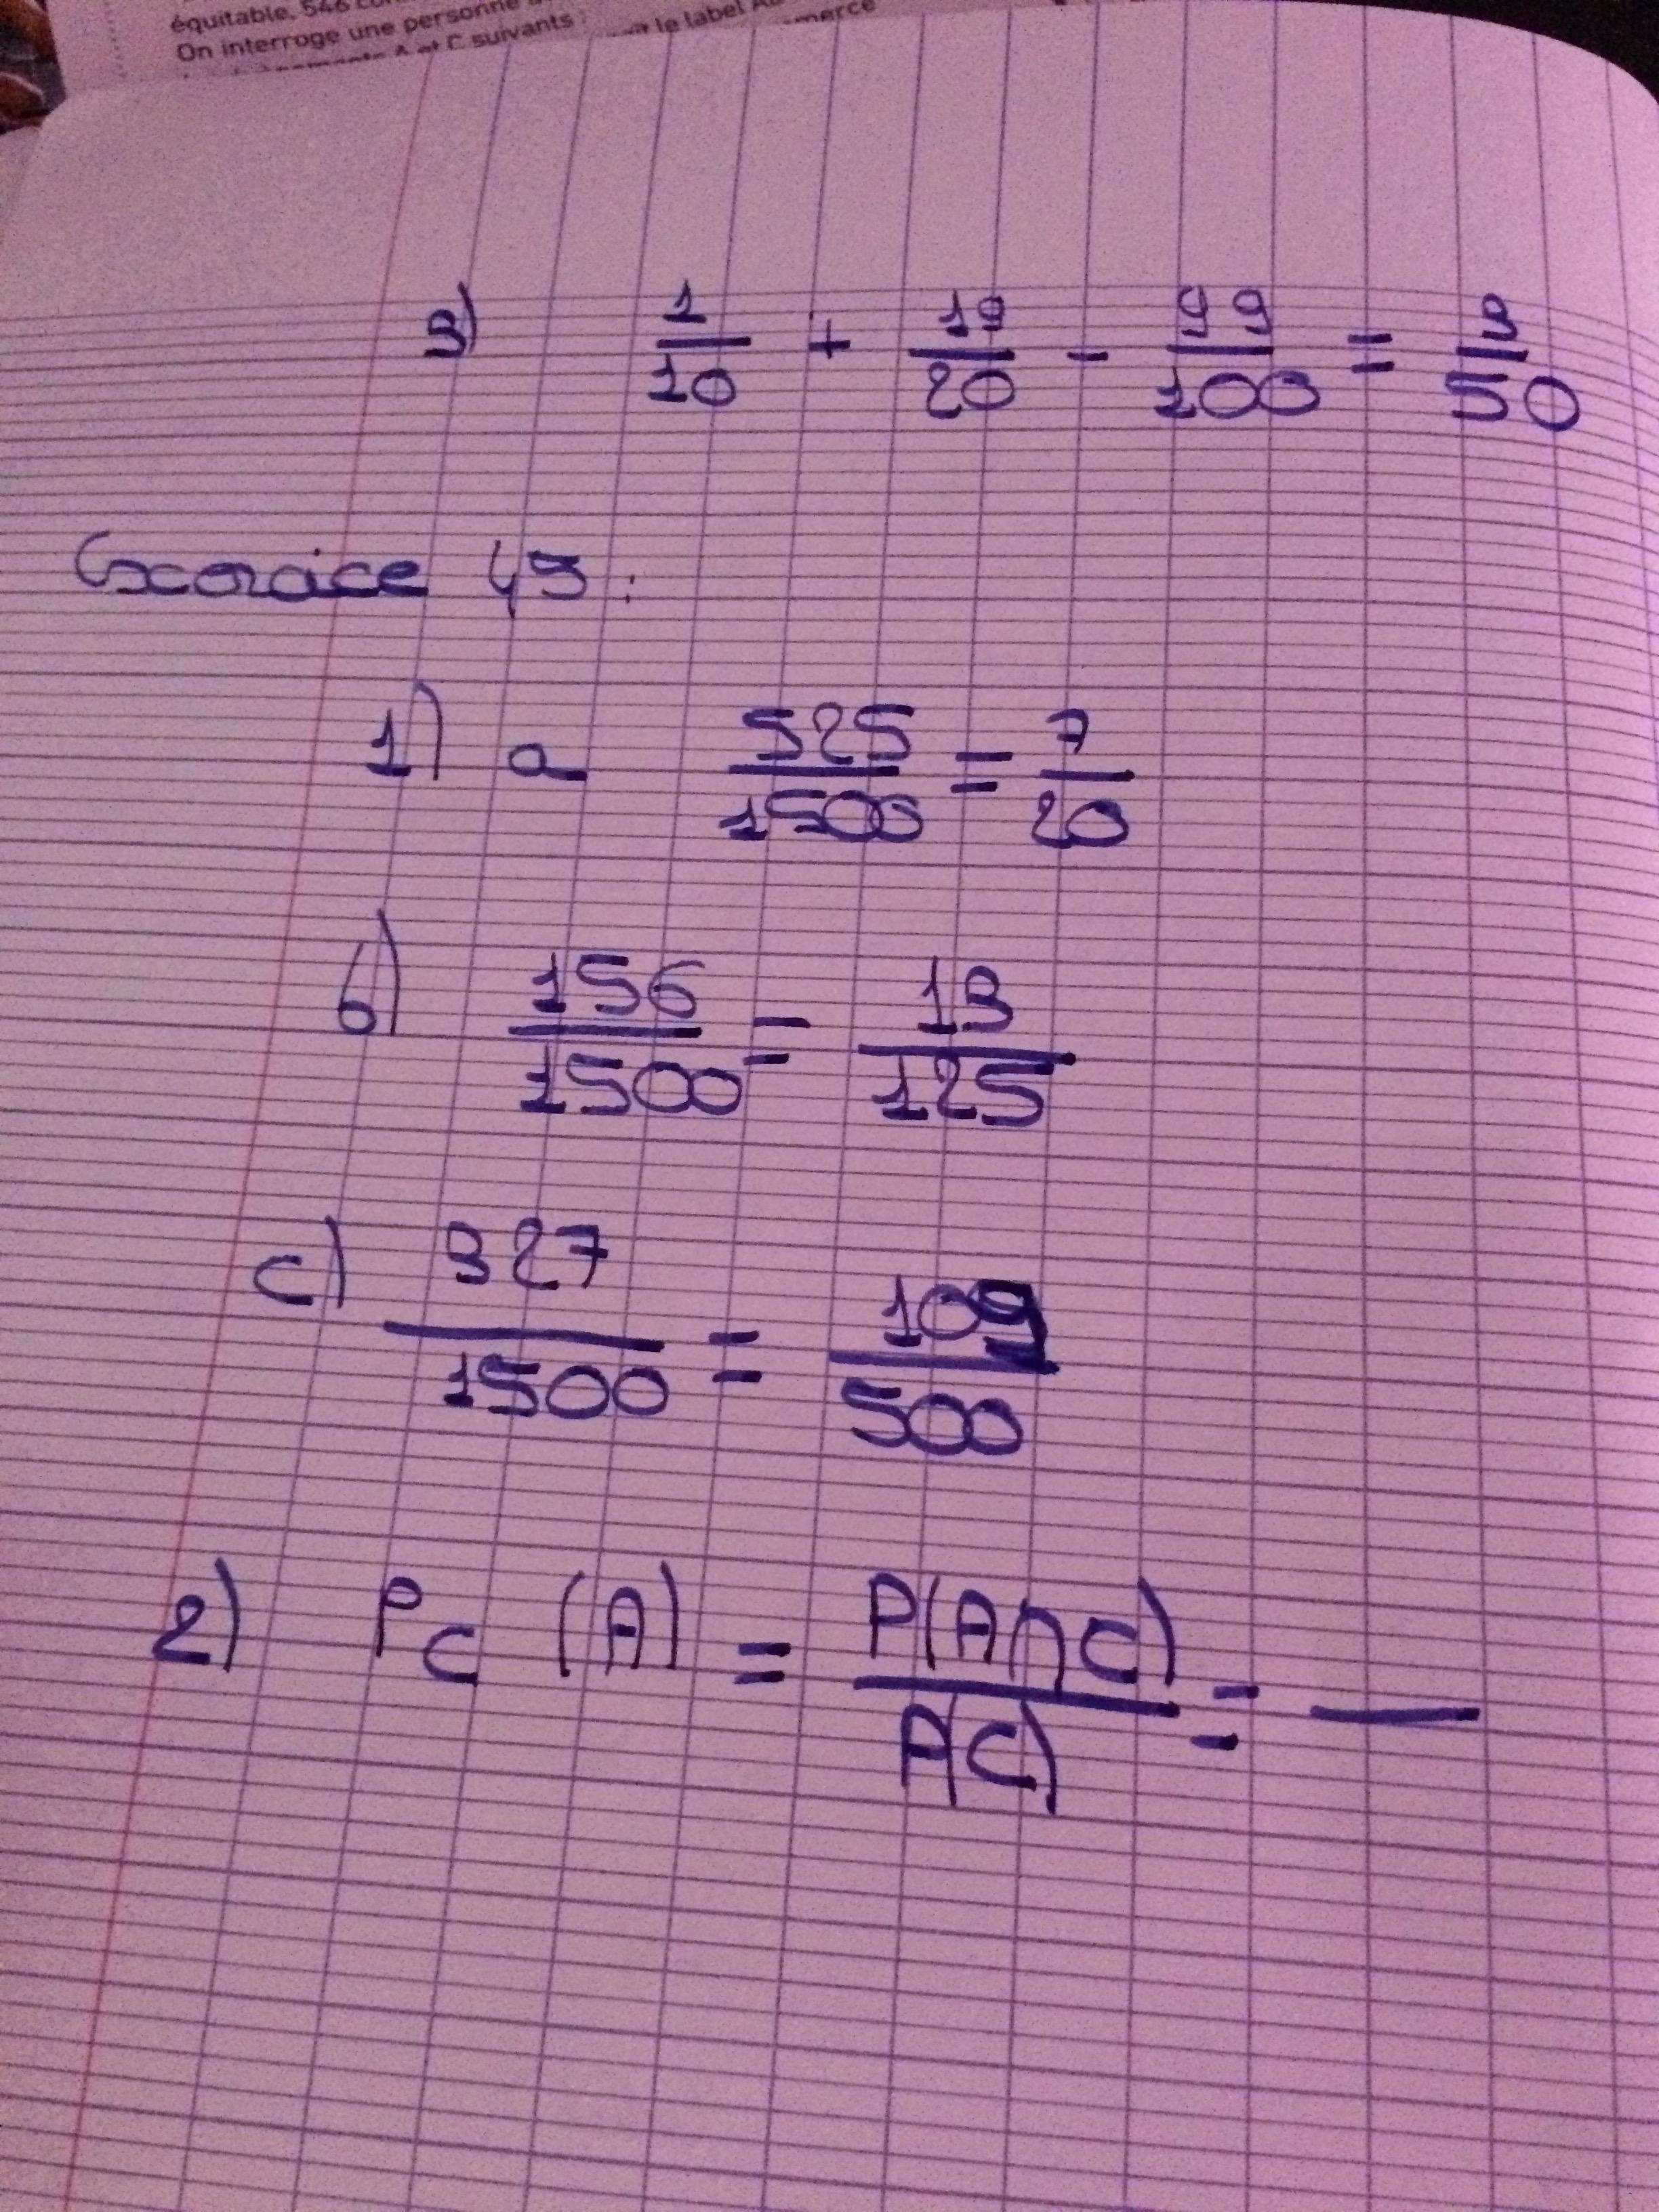 équitable, 546
On interroge une personne
A et C suivants :
le label
merce
3) 1/10 + 19/20 - 99/100 = 3/50
Exercice 45 :
1) a 525/1500 = 7/20
b) 156/1500 = 13/125
c) 327/1500 = 109/500
2) P_C (A) = P(A∩C)/A(C) = —